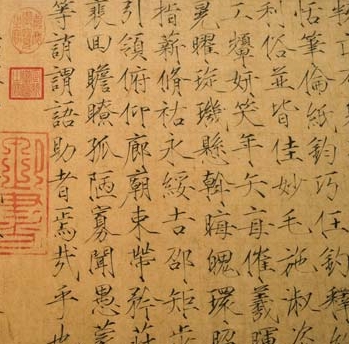 恬筆倫紙鈞巧任釣釋
利俗並皆佳妙毛施淑姿
工顰妍笑年矢每催羲暉
曜琁璣懸斡晦魄環照
指薪脩祜永綏吉邵矩步
引領俯仰廊廟束帶矜莊
裵回瞻眺孤陋寡聞愚蒙
等誚謂語助者焉哉乎也
御書